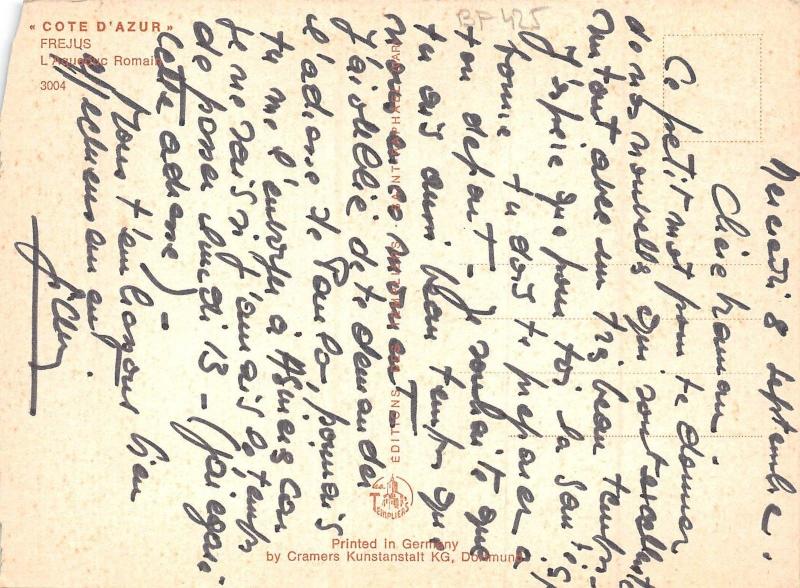 « COTE D'AZUR »
FREJUS
L'Aqueduc Romain
3004
BF 425
EDITIONS "LES TEMPLIERS" - SAINT-RAPHAEL (VAR)
Les
TEMPLIERS
Printed in Germany
by Cramers Kunstanstalt KG, Dortmund
Mercredi 8 septembre.
Chère Maman.
Ce petit mot pour te donner
de nos nouvelles qui sont excellentes
surtout avec un très beau temps
J'espère que pour toi la santé est
bonne tu dois te préparer à
ton départ - Je souhaite que
tu aies aussi beau temps que
nous en ce moment
J'ai oublié de te demander
l'adresse de Paulo, pourrais
tu me l'envoyer à Asnières car
je ne sais si j'aurais le temps
de passer lundi 13 - (j'ai égaré
cette adresse) -
Nous t'embrassons bien
affectueusement